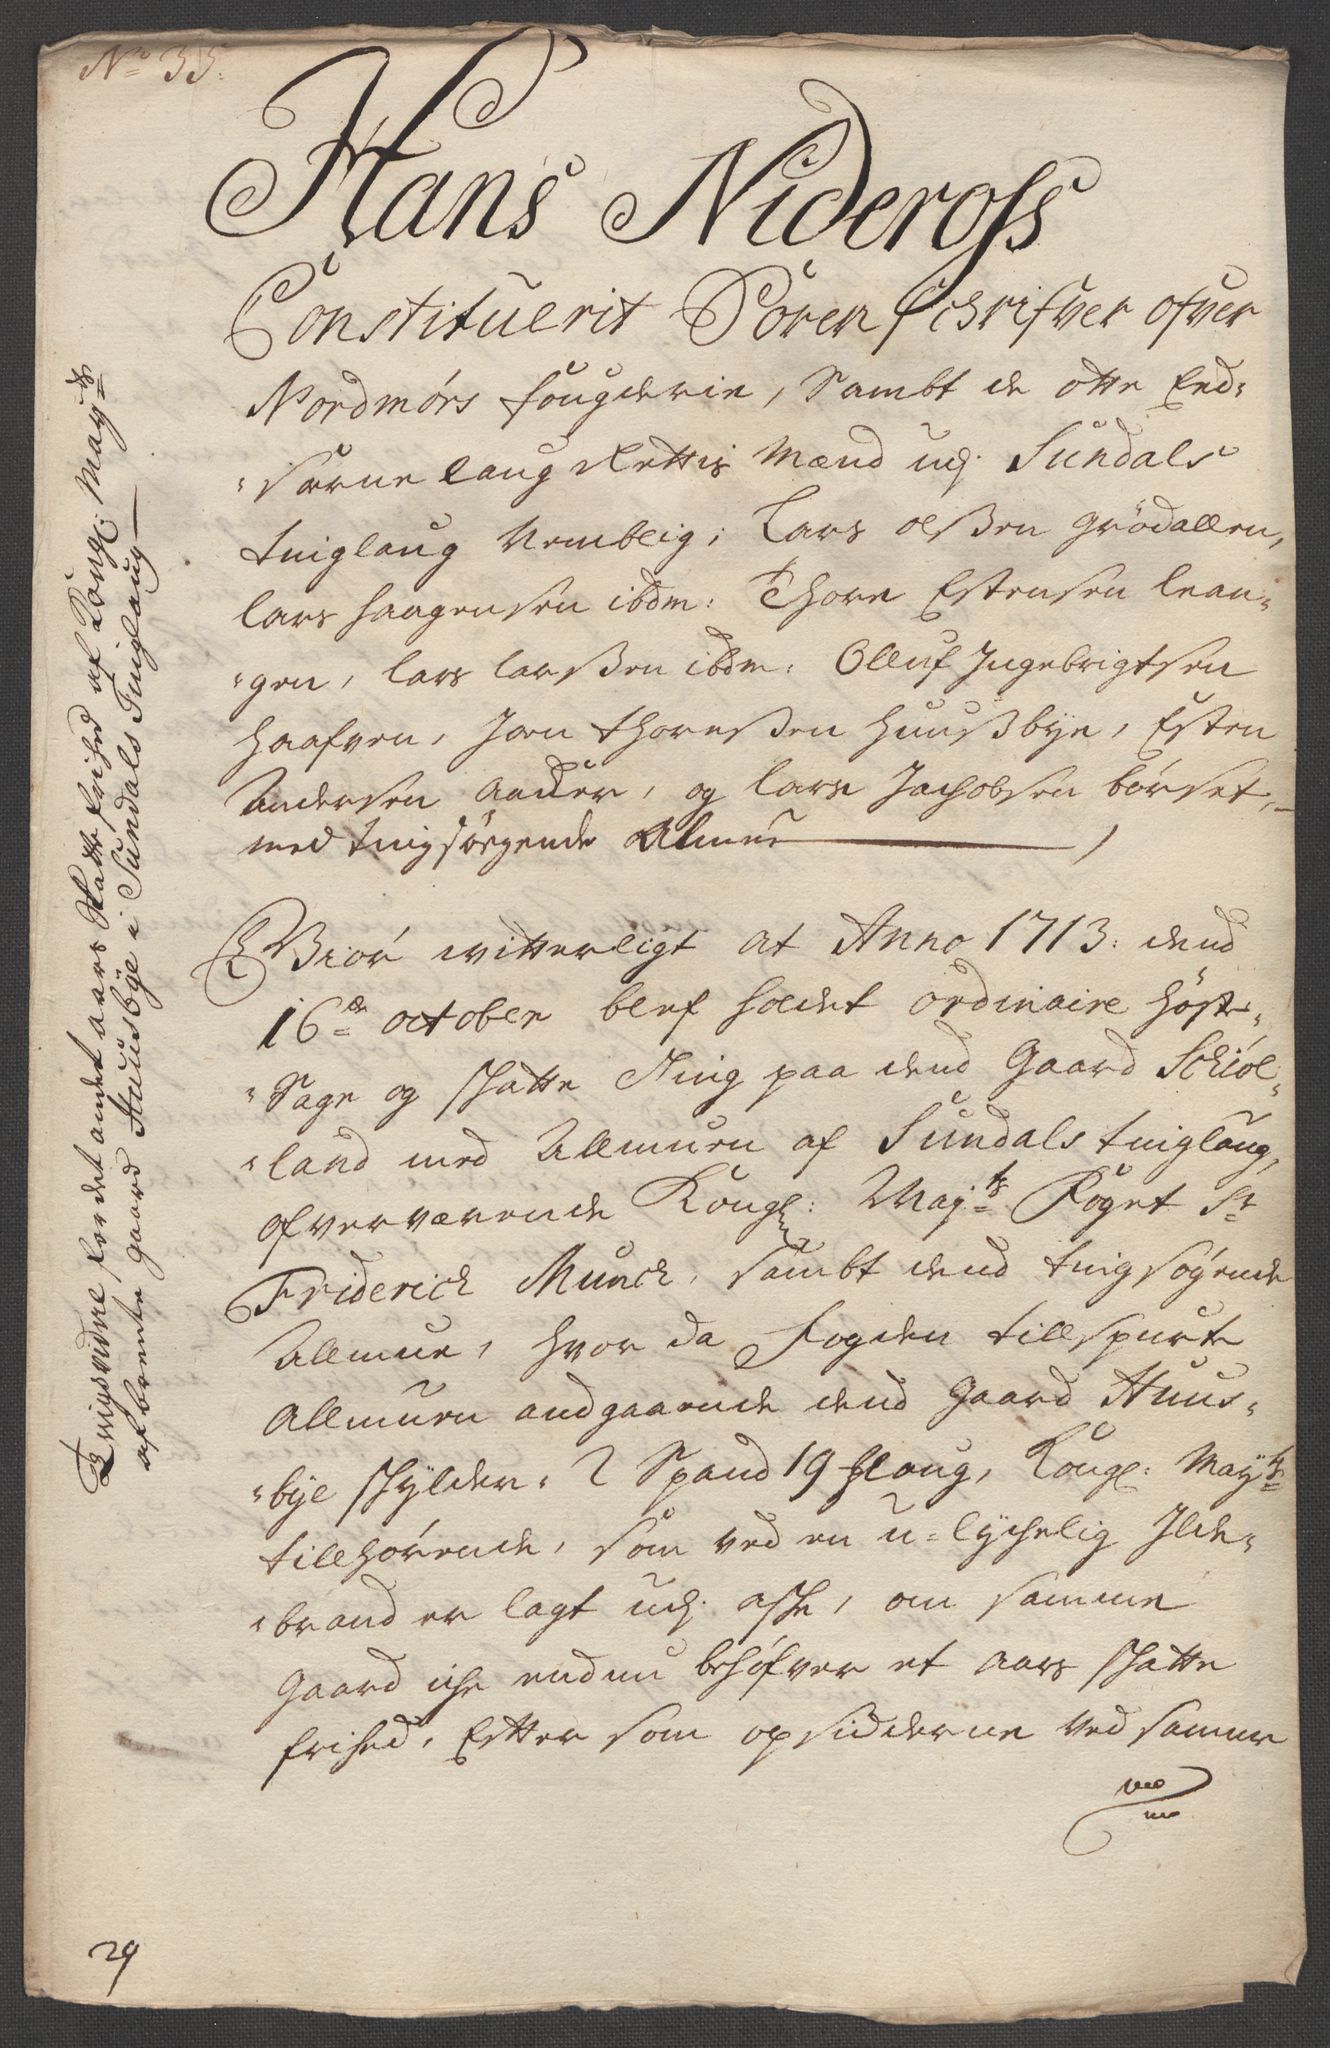 No 35.
Hans Nideross
Constituerit Sorenschrifver ofver
Nordmørs fougderie, Sambt de otte Eed-
sorne laug Rettis Mænd udj Sundals
tinglaug Nemblig; Lars olßen Grödallen,
lars haagensen ibdm: Thore Estensen lean-
gen, lars larßen ibdm: Olluf Ingebrigtsen
haafven, Joen thoreßen huusbye, Esten
Andersen aader, og lars Jachobsen børset,
med tingsøgende Almue
Giør witterligt at Anno 1713: dend
16de october blef holdet ordinaire høste-
Sage og schatte Ting paa dend Gaard Schiol-
land med Allmuen af Sundals tinglaug,
ofverværende Kongl: Maj:ts Foget Sr
Friderich Munch, sambt dend tingsøgende
Allmue, hvor da Fogden tillspurte
Allmuen andgaaende dend gaard Huus-
bye schylder 2 Spand 19 Mlaug, Kongl: May:ts
tillhørende, som ved en u-lychelig Ilde-
brand er lagt udj asche, om samme
gaard iche endnu behøfver et aars schatte
frihed, Efter som opsidderne ved samme
Tingsvidne for det andet aars Schatte frihed af Kongl: May:ts
afbrente gaard Huusbye i Sundals Tinglaug
29